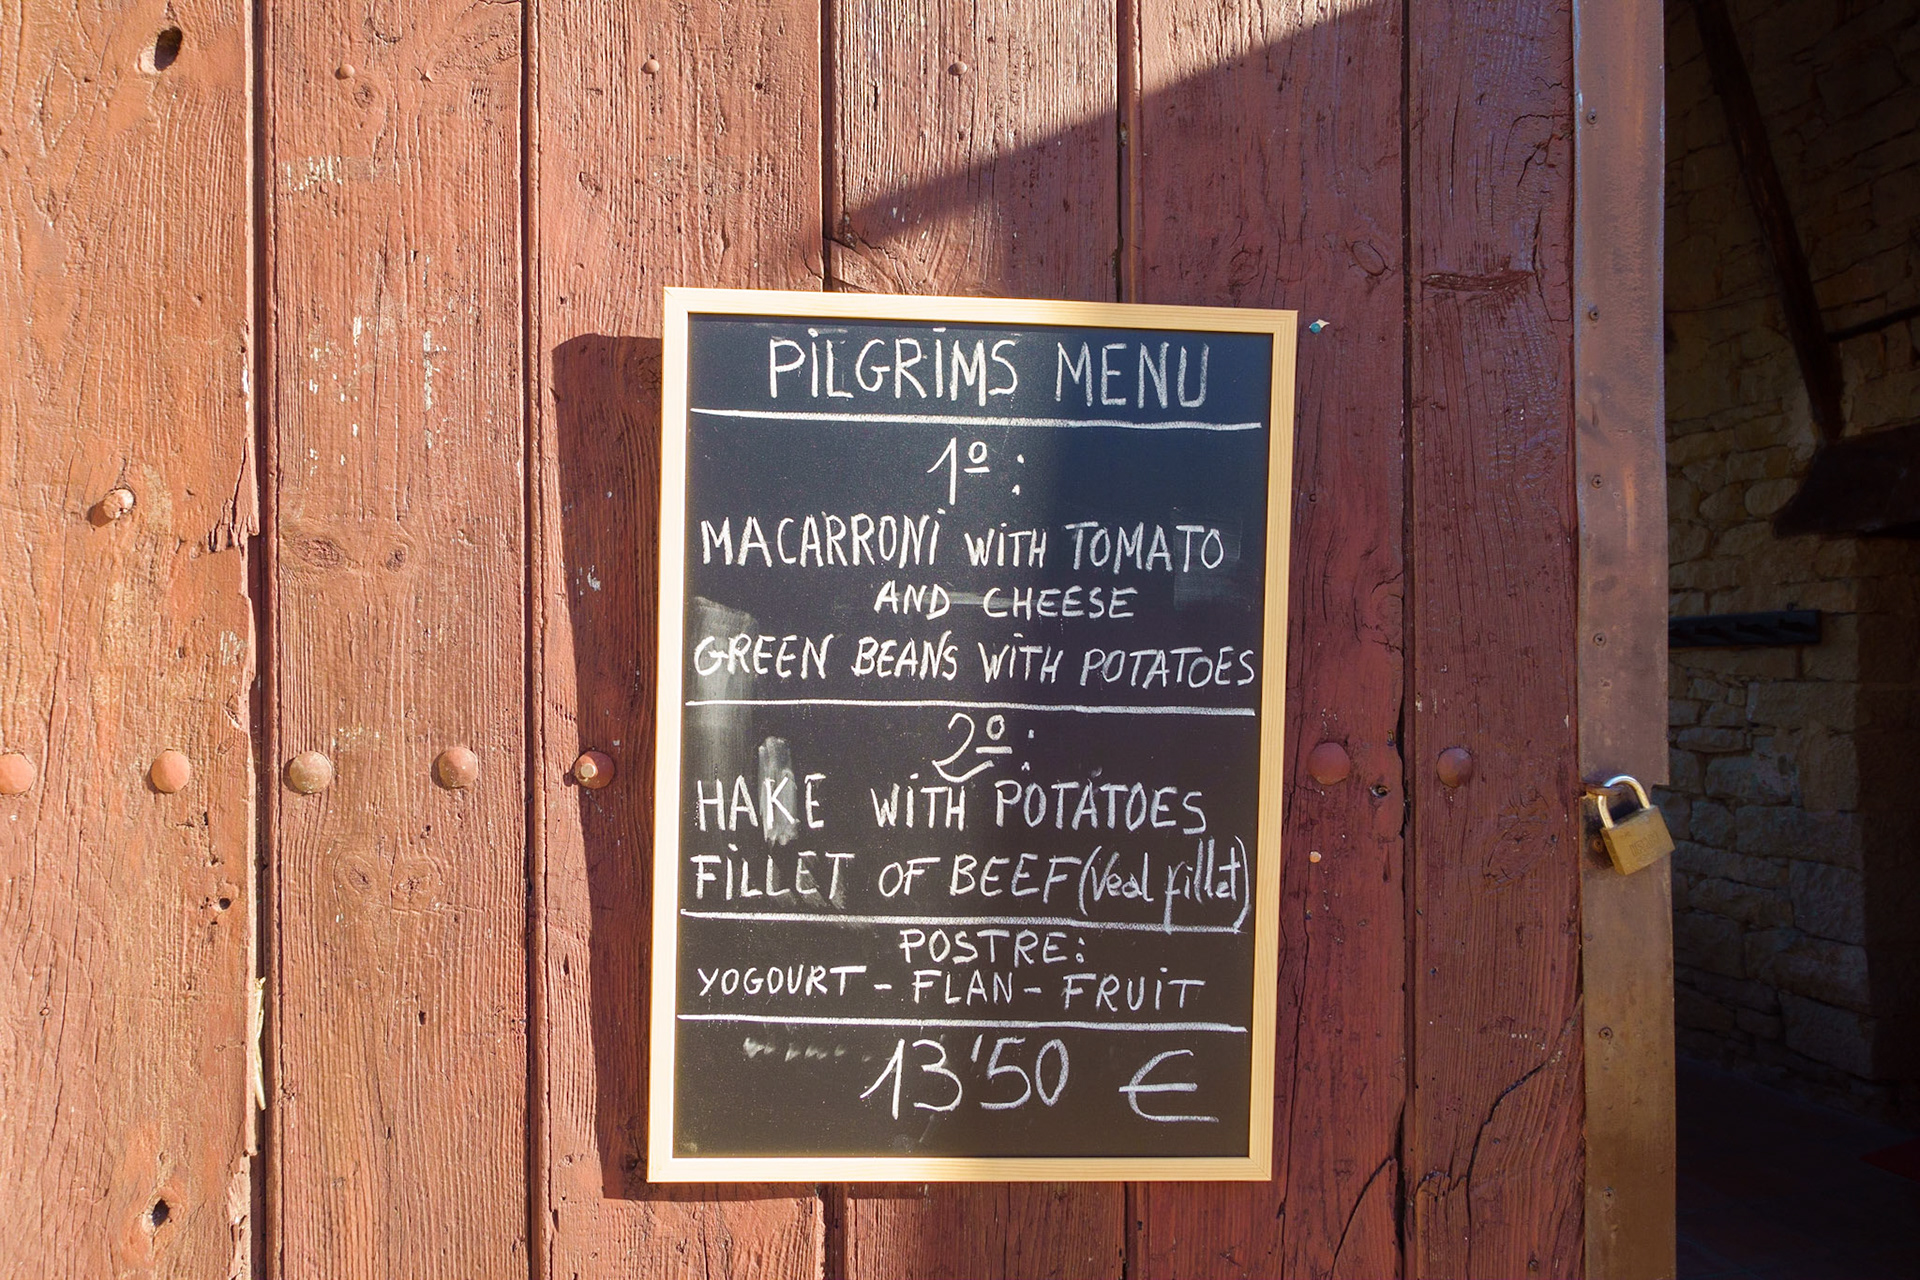 PiLGRiMS MENU
1º:
MACARRONi WiTH TOMATO
AND CHEESE
GREEN BEANS WiTH POTATOES
2º:
HAKE WiTH POTATOES
FiLLET OF BEEF (Veal fillet)
POSTRE:
YOGOURT - FLAN - FRUiT
13'50 €